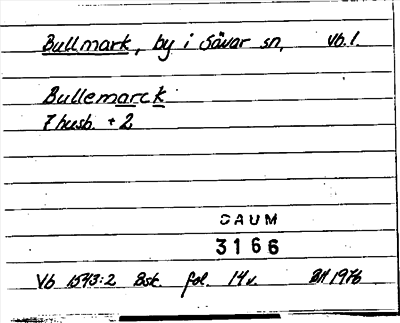 Bullmark, by i Sävar sn, Vb. l.
Bullemarck
7 husb. + 2
DAUM
3166
Vb 1543:2 Bsk. fol. 14v. BH 1976